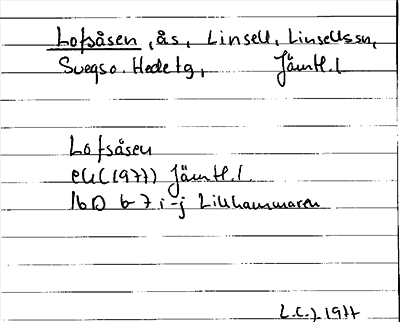 Lofsåsen, ås, Linsell, Linsells sn,
Svegs o. Hede tg, Jämtl. l
Lofsåsen
ek (1977) Jämtl. l.
16D 6-7 i-j Lillhammaren
L.C.J 1977